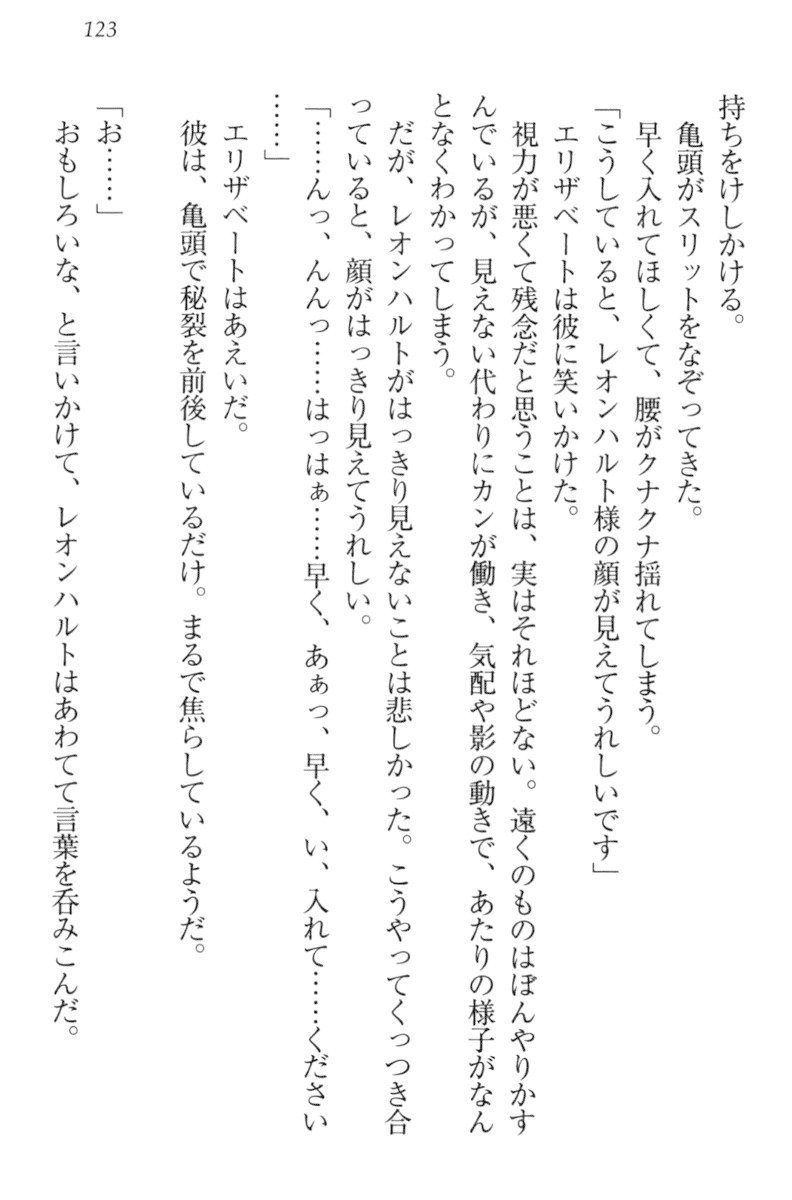 123
持ちをけしかける。
亀頭がスリットをなぞってきた。
早く入れてほしくて、腰がクナクナ揺れてしまう。
「こうしていると、レオンハルト様の顔が見えてうれしいです」
エリザベートは彼に笑いかけた。
視力が悪くて残念だと思うことは、実はそれほどない。遠くのものはぼんやりかす
んでいるが、見えない代わりにカンが働き、気配や影の動きで、あたりの様子がなん
となくわかってしまう。
だが、レオンハルトがはっきり見えないことは悲しかった。こうやってくっつき合
っていると、顔がはっきり見えてうれしい。
「……んっ、んんっ……はっはぁ……早く、あぁっ、早く、い、入れて……ください
……」
エリザベートはあえいだ。
彼は、亀頭で秘裂を前後しているだけ。まるで焦らしているようだ。
「お……」
おもしろいな、と言いかけて、レオンハルトはあわてて言葉を呑みこんだ。